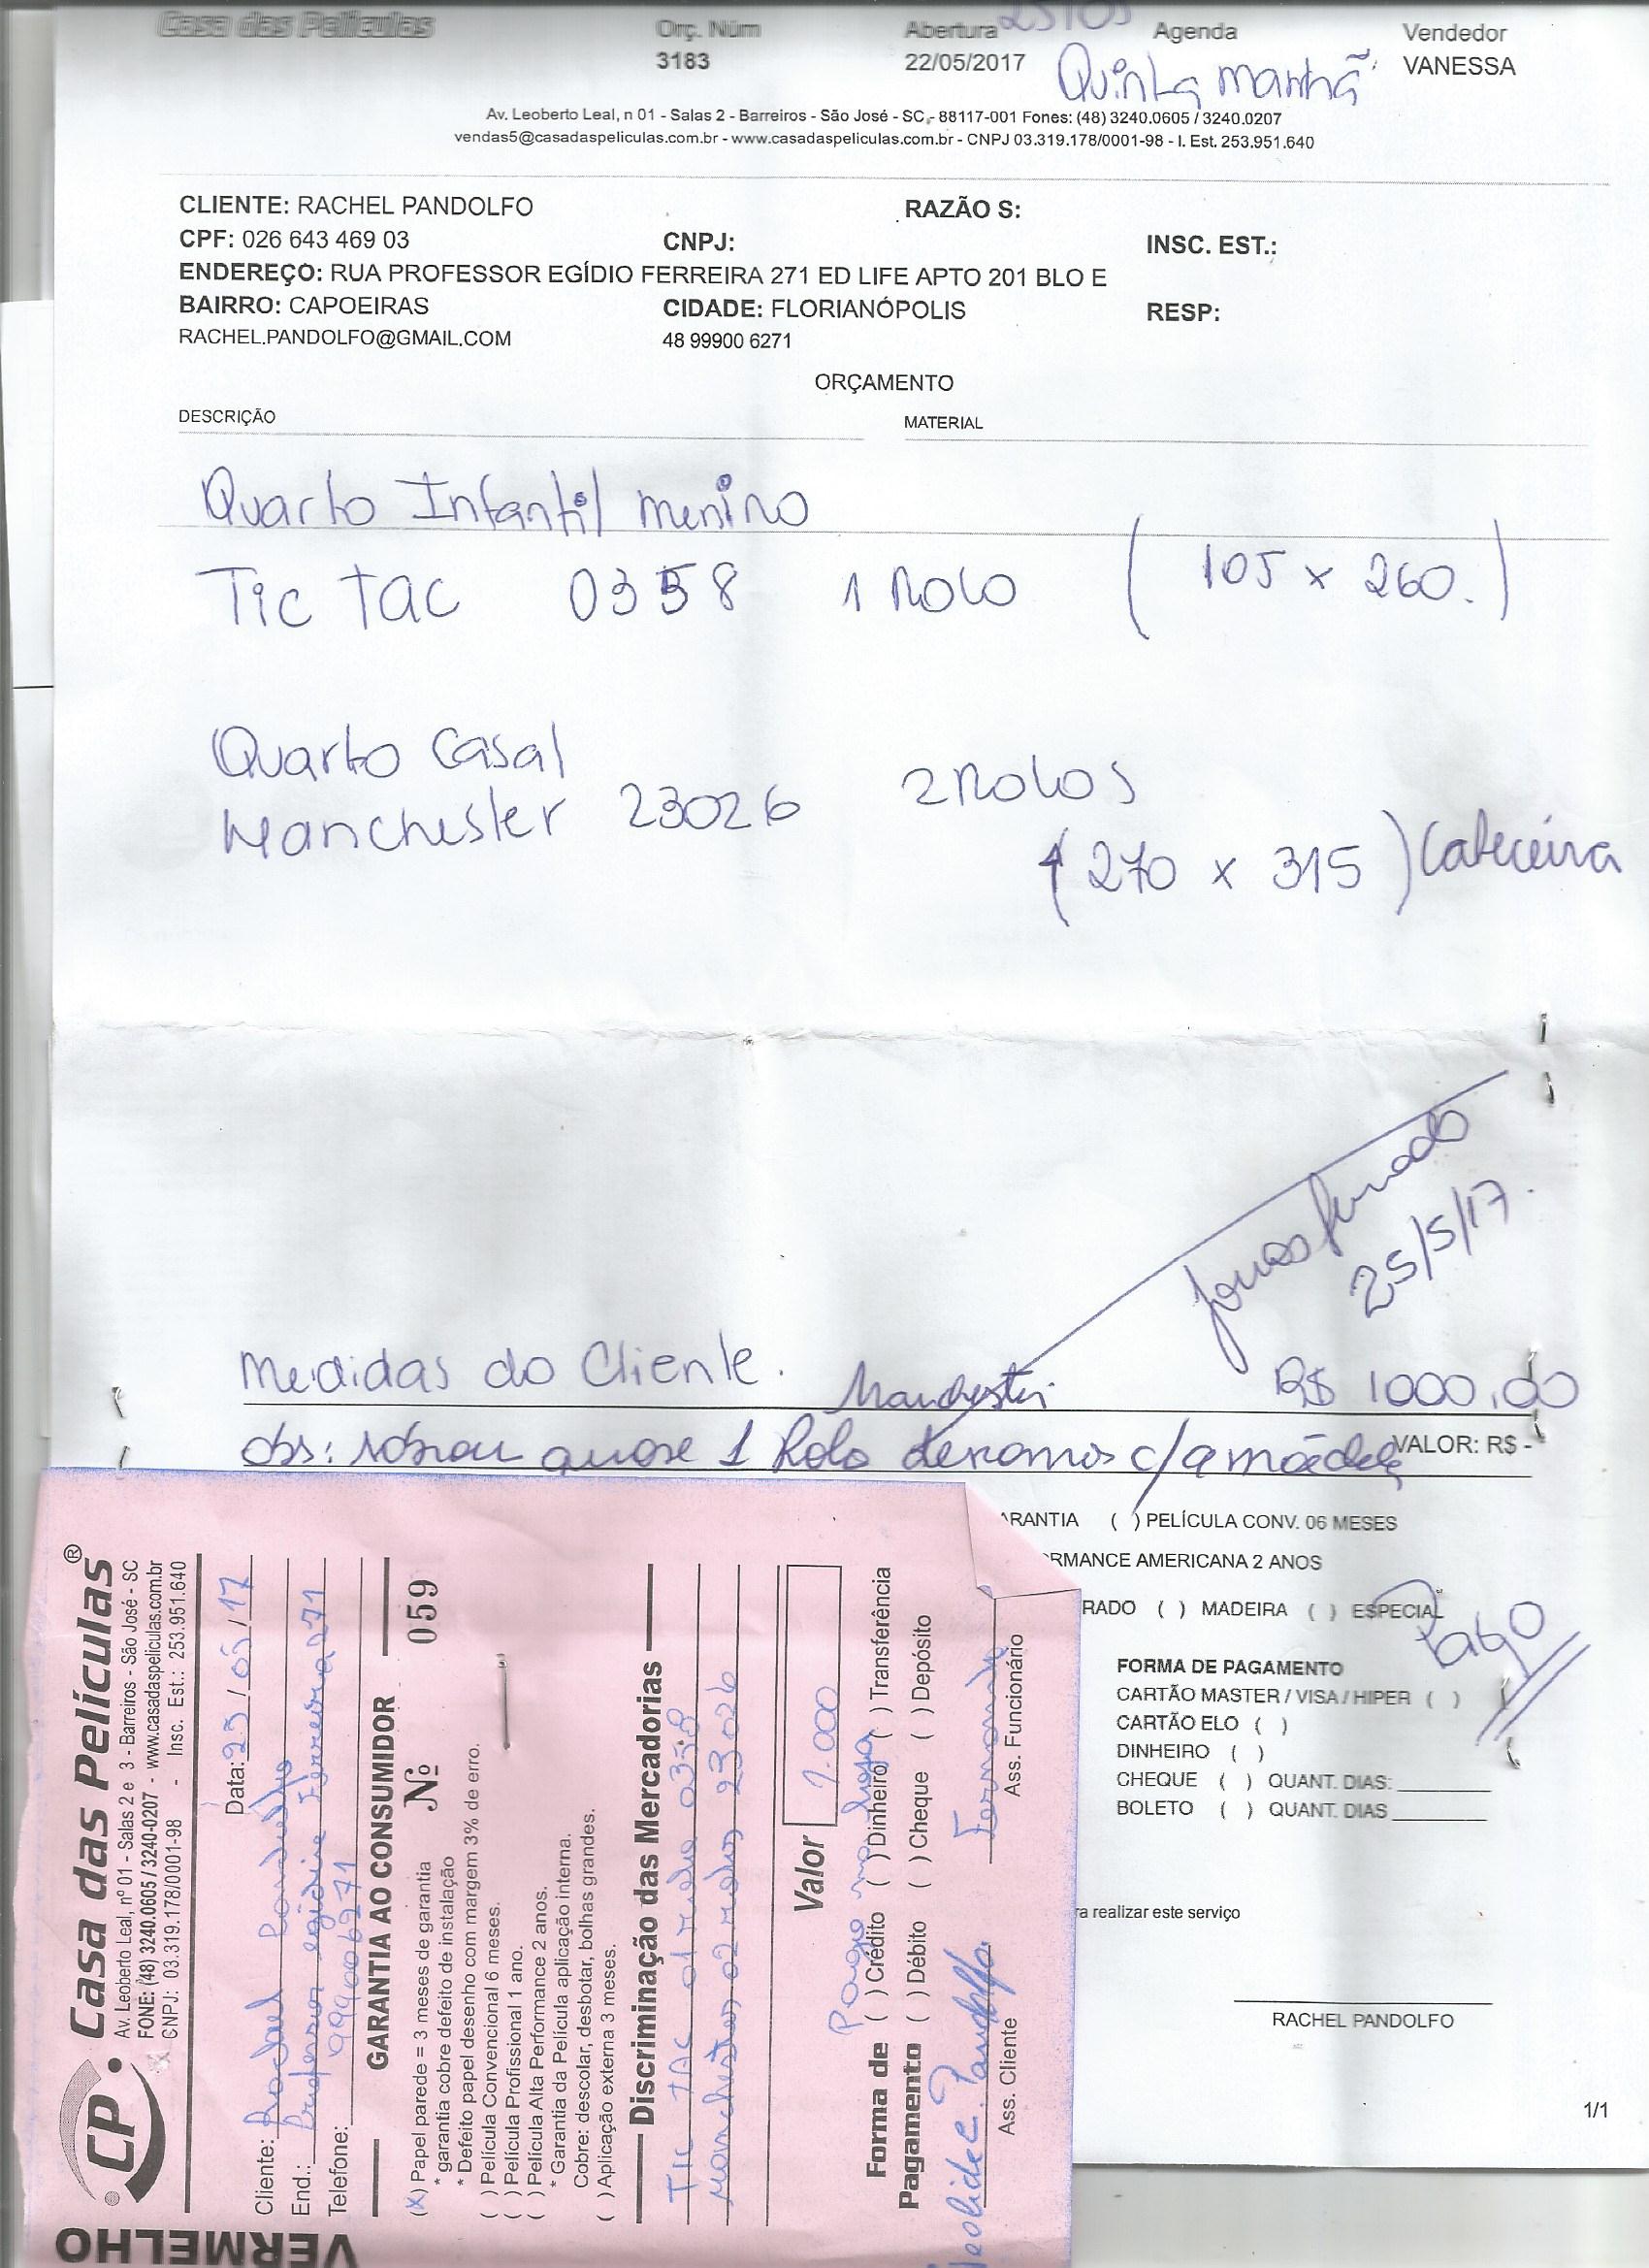 Casa das Películas
Orç. Núm
3183
Abertura
22/05/2017
25/05
Agenda
Quinta manhã
Vendedor
VANESSA
Av. Leoberto Leal, n 01 - Salas 2 - Barreiros - São José - SC - 88117-001 Fones: (48) 3240.0605 / 3240.0207
vendas5@casadaspeliculas.com.br - www.casadaspeliculas.com.br - CNPJ 03.319.178/0001-98 - I. Est. 253.951.640
CLIENTE: RACHEL PANDOLFO RAZÃO S:
CPF: 026 643 469 03 CNPJ: INSC. EST.:
ENDEREÇO: RUA PROFESSOR EGÍDIO FERREIRA 271 ED LIFE APTO 201 BLO E
BAIRRO: CAPOEIRAS CIDADE: FLORIANÓPOLIS RESP:
RACHEL.PANDOLFO@GMAIL.COM 48 99900 6271
ORÇAMENTO
DESCRIÇÃO MATERIAL
Quarto Infantil menino
Tic Tac 0358 1 Rolo ( 105 x 260. )
Quarto Casal
Manchester 23026 2 Rolos
( 270 x 315 ) Cabeceira
25/5/17.
Medidas do Cliente. Manchester R$ 1000,00
obs: sobrou quase 1 Rolo
VALOR: R$ -
ARANTIA ( ) PELÍCULA CONV. 06 MESES
RMANCE AMERICANA 2 ANOS
RADO ( ) MADEIRA ( ) ESPECIAL
Pago
FORMA DE PAGAMENTO
CARTÃO MASTER / VISA / HIPER ( )
CARTÃO ELO ( )
DINHEIRO ( )
CHEQUE ( ) QUANT. DIAS:
BOLETO ( ) QUANT. DIAS
ra realizar este serviço
RACHEL PANDOLFO
1/1
CP. Casa das Películas®
Av. Leoberto Leal, nº 01 - Salas 2 e 3 - Barreiros - São José - SC
FONE: (48) 3240.0605 / 3240-0207 - www.casadaspeliculas.com.br
CNPJ: 03.319.178/0001-98 - Insc. Est.: 253.951.640
Data: 25/05/17
Cliente: Rachel Pandolfo
End.: Professor egidio Ferreira 271
Telefone: 999006271
GARANTIA AO CONSUMIDOR
Nº 059
(X) Papel parede = 3 meses de garantia
* garantia cobre defeito de instalação
* Defeito papel desenho com margem 3% de erro.
( ) Película Convencional 6 meses.
( ) Película Profissional 1 ano.
( ) Película Alta Performance 2 anos.
* Garantia da Película aplicação interna.
Cobre: descolar, desbotar, bolhas grandes.
( ) Aplicação externa 3 meses.
Discriminação das Mercadorias
TIC TAC 01 rolo 0358
Manchester 02 rolos 23026
Valor 1.000
Pago na loja
Forma de Pagamento
( ) Crédito ( ) Dinheiro ( ) Transférência
( ) Débito ( ) Cheque ( ) Depósito
Pandolfo. Fernando
Ass. Cliente Ass. Funcionário
VERMELHO